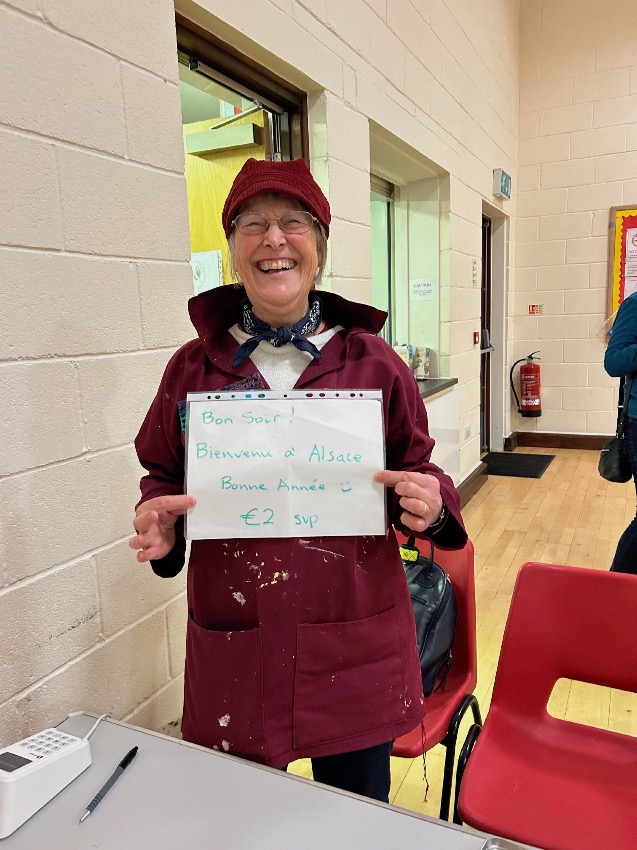 Bon Soir !
Bienvenu à Alsace
Bonne Année ☺
€2 svp
CAUTION